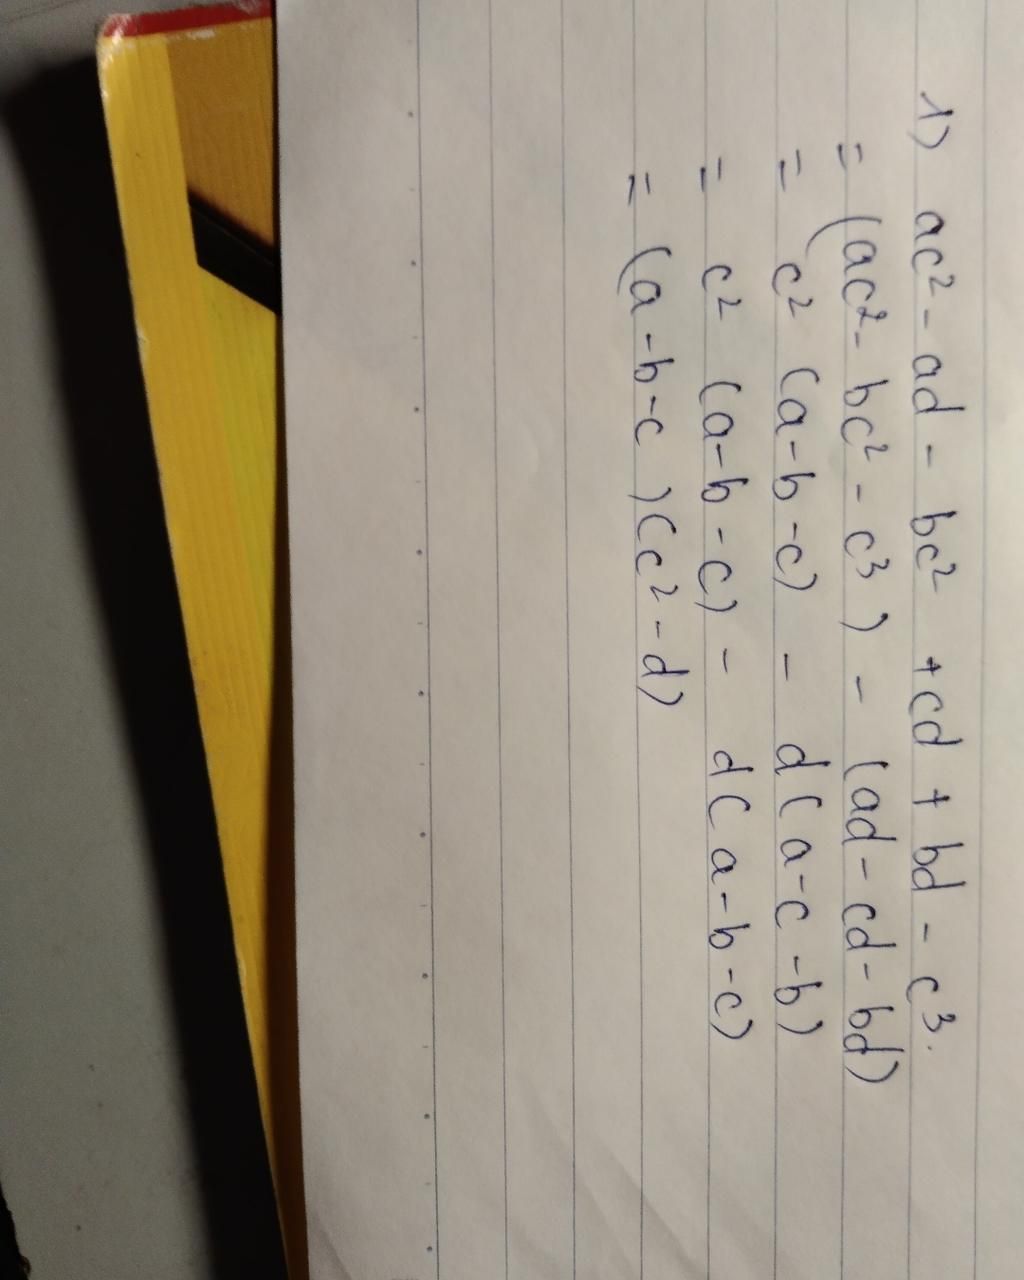 1) ac² - ad - bc² + cd + bd - c³.
= (ac² - bc² - c³) - (ad - cd - bd)
= c² (a - b - c) - d (a - c - b)
= c² (a - b - c) - d (a - b - c)
= (a - b - c) (c² - d)